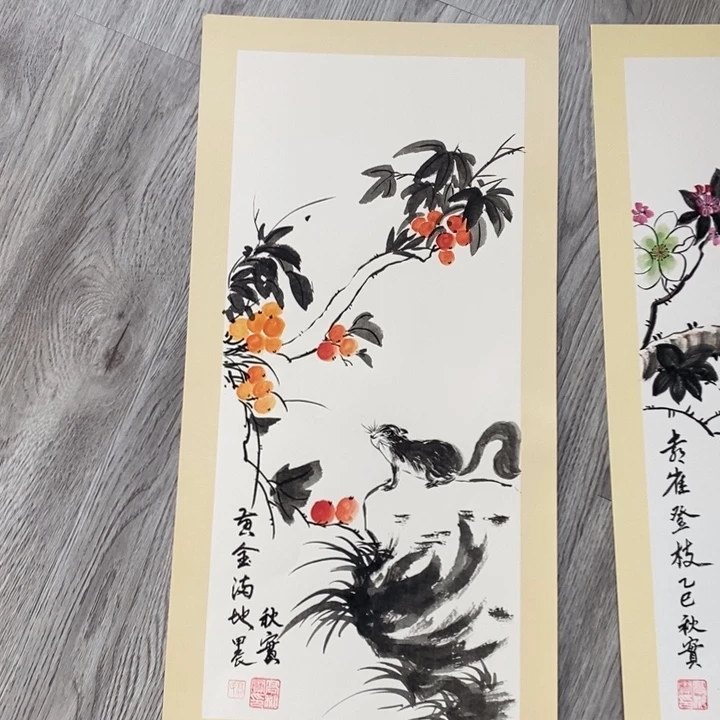 黄金满地
秋實
喜雀登枝乙巳秋實